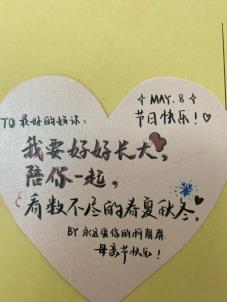 ☆ MAY. 8 ☆
节日快乐!♡
TO 最好的妈咪:
我要好好长大,
陪你一起,
看数不尽的春夏秋冬。
BY 永远爱你的
母亲节快乐!